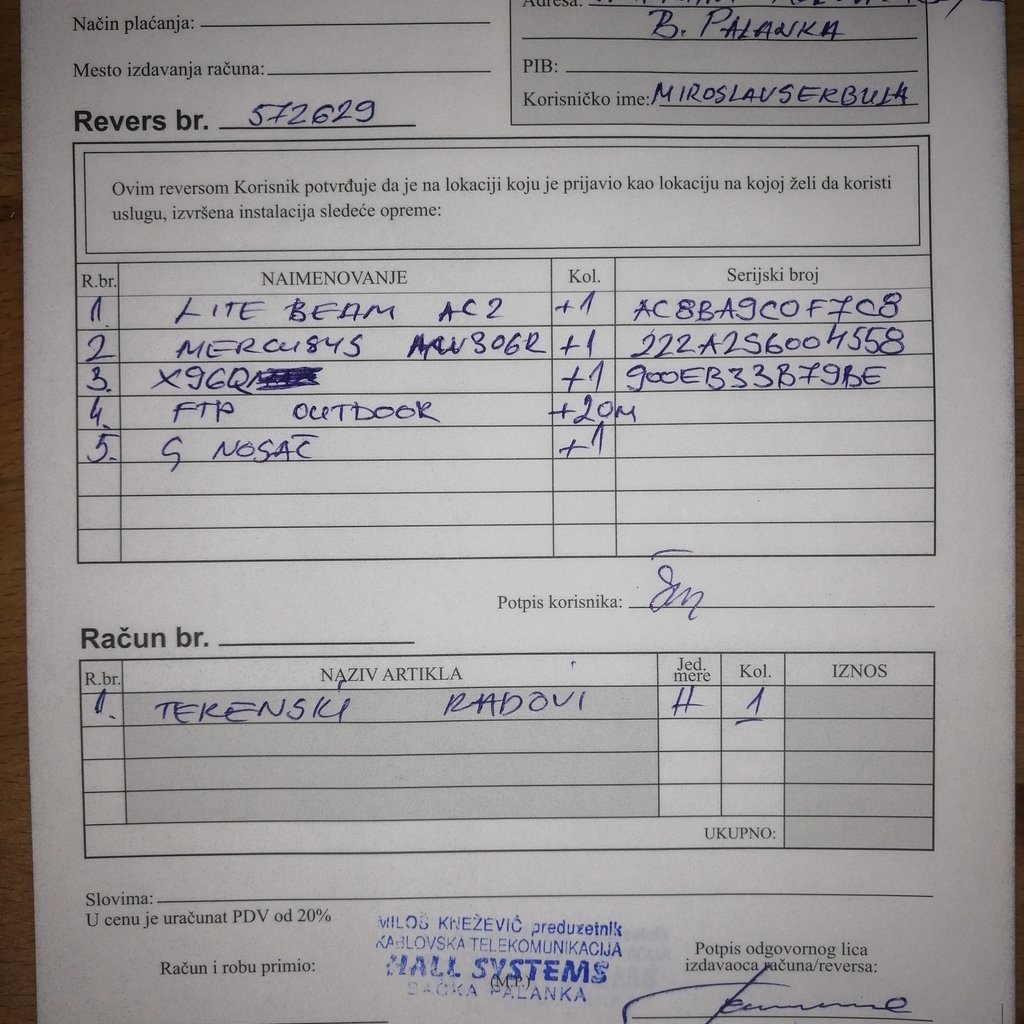 Način plaćanja:
Adresa:
B. PALANKA
Mesto izdavanja računa:
PIB:
Korisničko ime: MIROSLAVSERBULA
Revers br. 572629
Ovim reversom Korisnik potvrđuje da je na lokaciji koju je prijavio kao lokaciju na kojoj želi da koristi
uslugu, izvršena instalacija sledeće opreme:
R.br. NAIMENOVANJE Kol. Serijski broj
1. LITE BEAM AC2 +1 AC8BA9C0F7C8
2 MERCUSYS +1 222A2S6004558
3. X96Q +1 900EB33B79BE
4. FTP OUTDOOR +20M
5. G NOSAČ +1
Potpis korisnika:
Račun br.
R.br. NAZIV ARTIKLA Jed. mere Kol. IZNOS
1. TERENSKI RADOVI H 1
UKUPNO:
Slovima:
U cenu je uračunat PDV od 20%
MILOŠ KNEŽEVIĆ preduzetnik
KABLOVSKA TELEKOMUNIKACIJA
HALL SYSTEMS
(M.P.)
BAČKA PALANKA
Račun i robu primio:
Potpis odgovornog lica
izdavaoca računa/reversa: